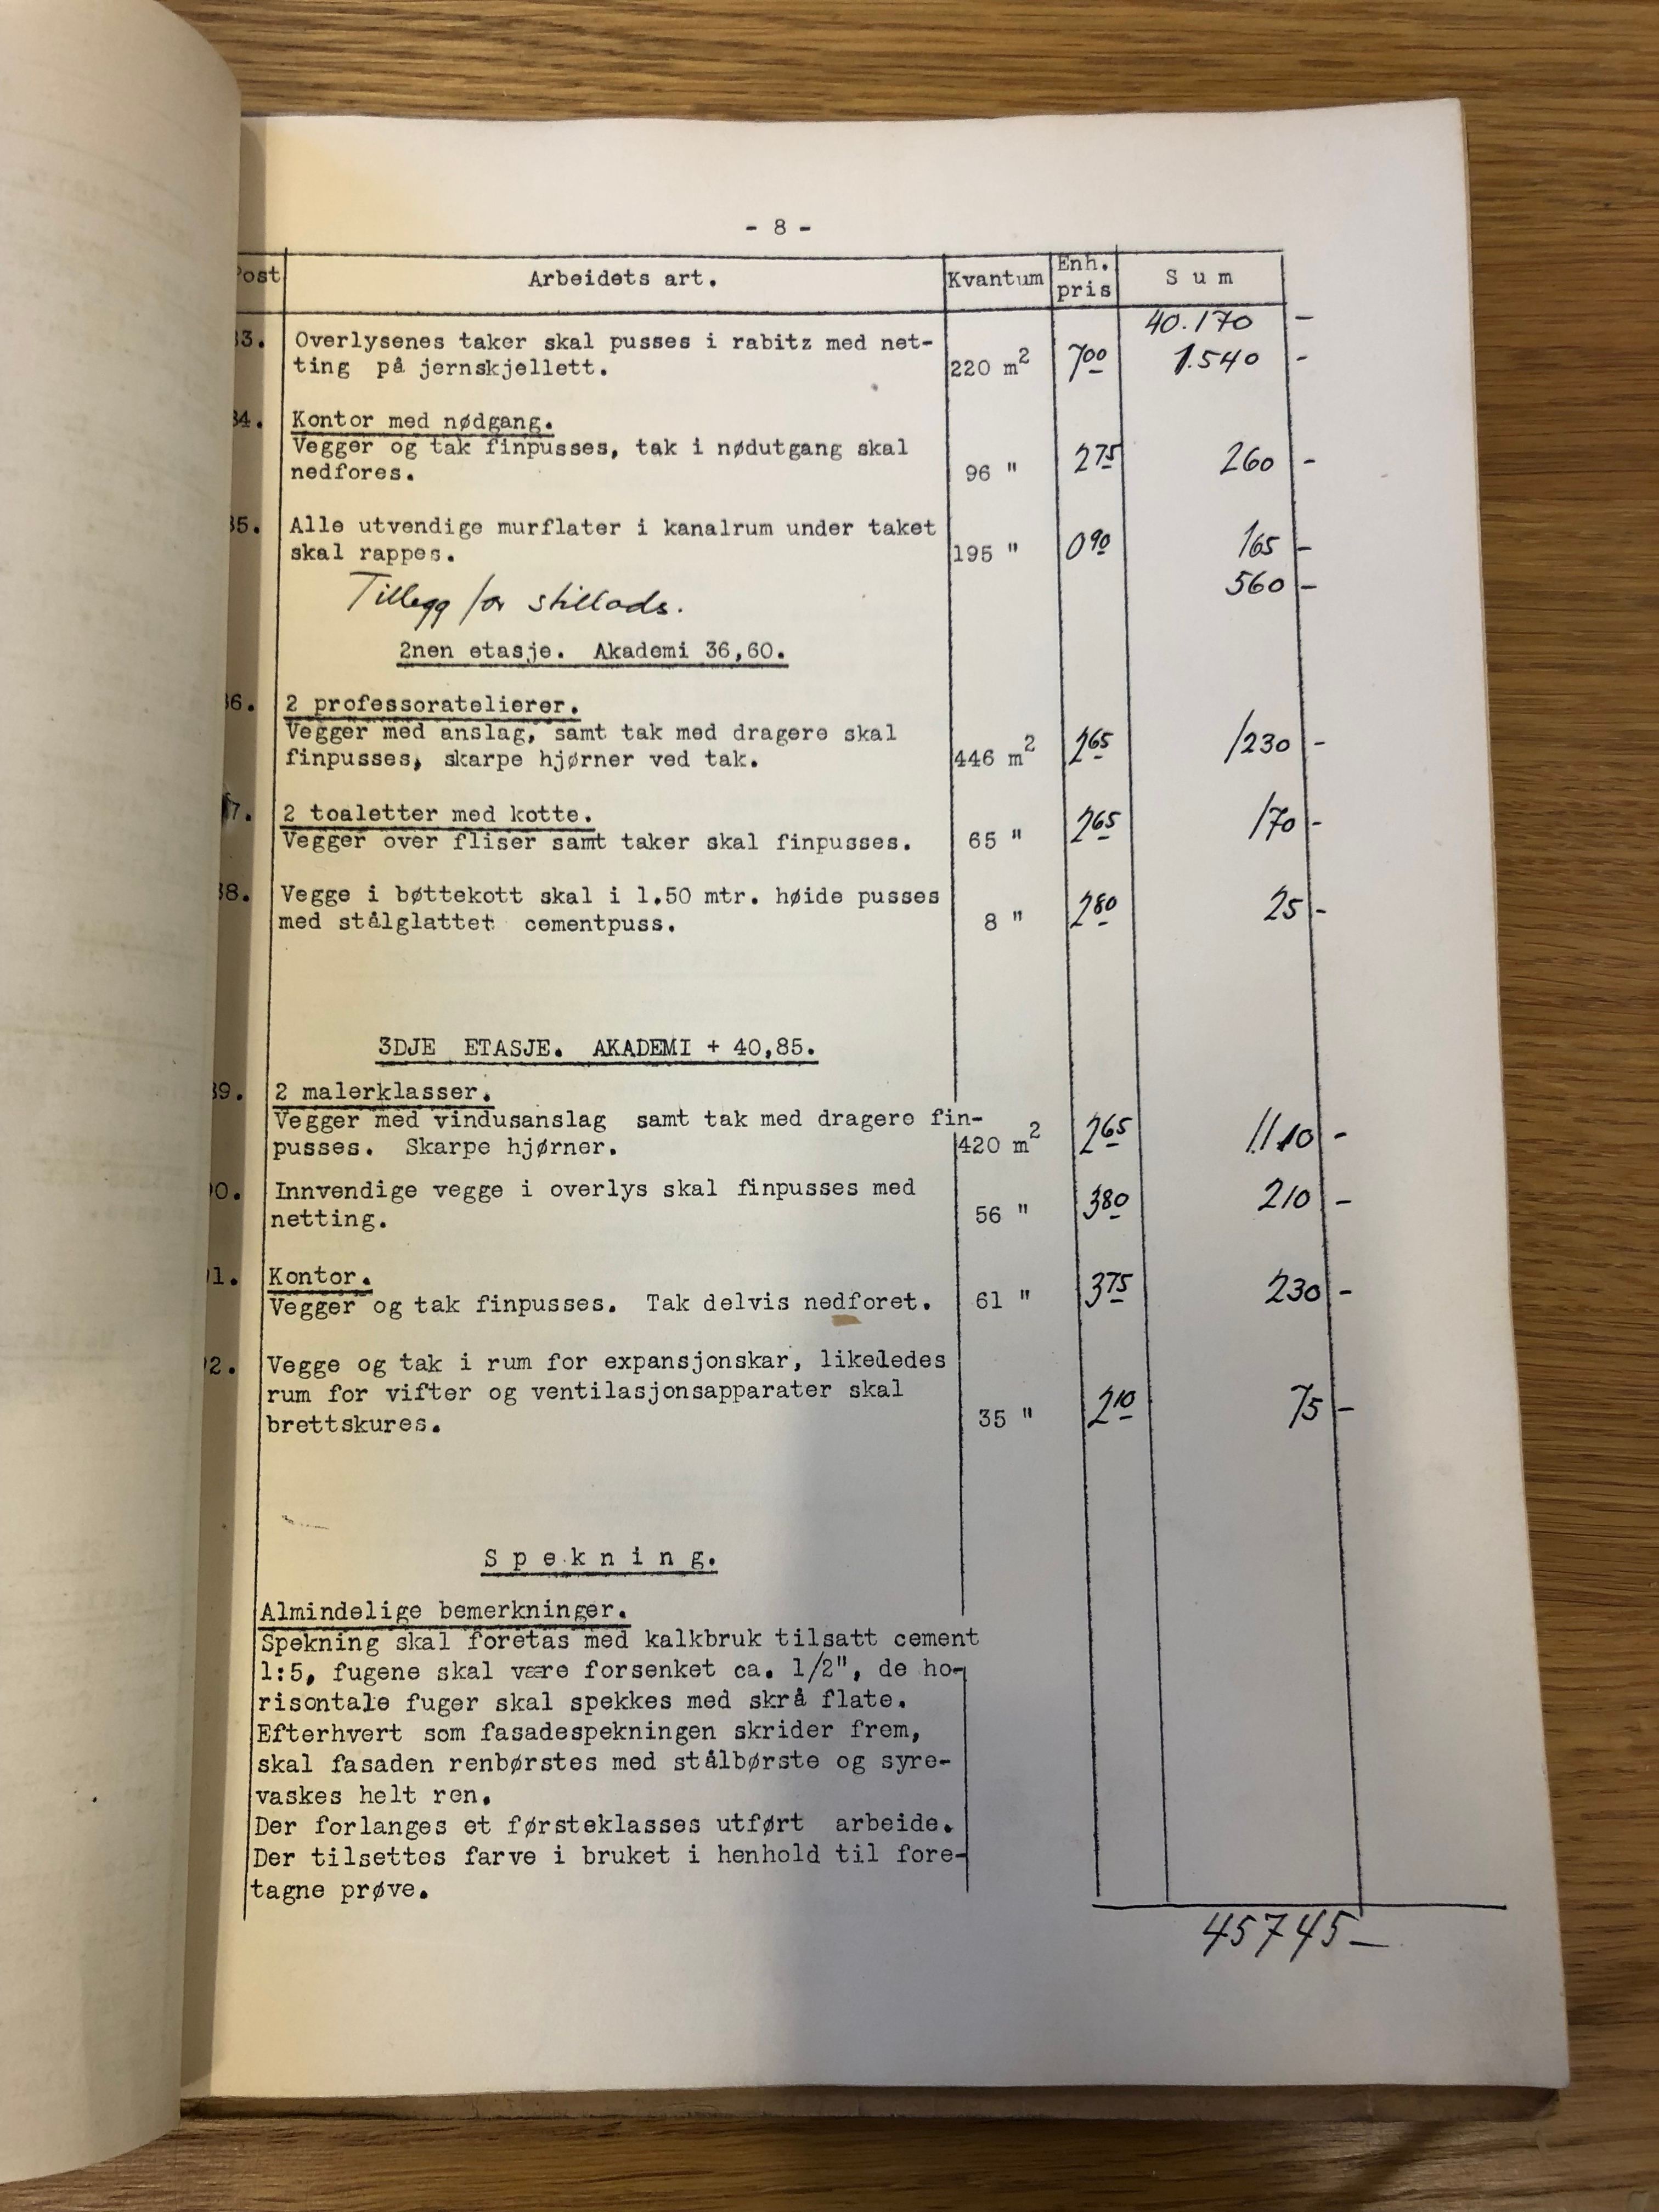 - 8 -
Post Arbeidets art. Kvantum Enh. pris Sum
40.170 -
83. Overlysenes taker skal pusses i rabitz med net-
ting på jernskjellett. 220 m2 7 00 1.540 -
84. Kontor med nødgang.
Vegger og tak finpusses, tak i nødutgang skal
nedfores. 96 " 2 75 260 -
85. Alle utvendige murflater i kanalrum under taket
skal rappes. 195 " 0 90 165 -
Tillegg for stillads. 560 -
2nen etasje. Akademi 36,60.
86. 2 professoratelierer.
Vegger med anslag, samt tak med dragere skal
finpusses, skarpe hjørner ved tak. 446 m2 2 65 1230 -
87. 2 toaletter med kotte.
Vegger over fliser samt taker skal finpusses. 65 " 2 65 170 -
88. Vegge i bøttekott skal i 1.50 mtr. høide pusses
med stålglattet cementpuss. 8 " 2 80 25 -
3DJE ETASJE. AKADEMI + 40,85.
89. 2 malerklasser.
Vegger med vindusanslag samt tak med dragere fin-
pusses. Skarpe hjørner. 420 m2 2 65 1.110 -
90. Innvendige vegge i overlys skal finpusses med
netting. 56 " 3 80 210 -
91. Kontor.
Vegger og tak finpusses. Tak delvis nedforet. 61 " 3 75 230 -
92. Vegge og tak i rum for expansjonskar, likeledes
rum for vifter og ventilasjonsapparater skal
brettskures. 35 " 2 10 75 -
Spekning.
Almindelige bemerkninger.
Spekning skal foretas med kalkbruk tilsatt cement
1:5, fugene skal være forsenket ca. 1/2", de ho-
risontale fuger skal spekkes med skrå flate.
Efterhvert som fasadespekningen skrider frem,
skal fasaden renbørstes med stålbørste og syre-
vaskes helt ren.
Der forlanges et førsteklasses utført arbeide.
Der tilsettes farve i bruket i henhold til fore-
tagne prøve.
45745 -